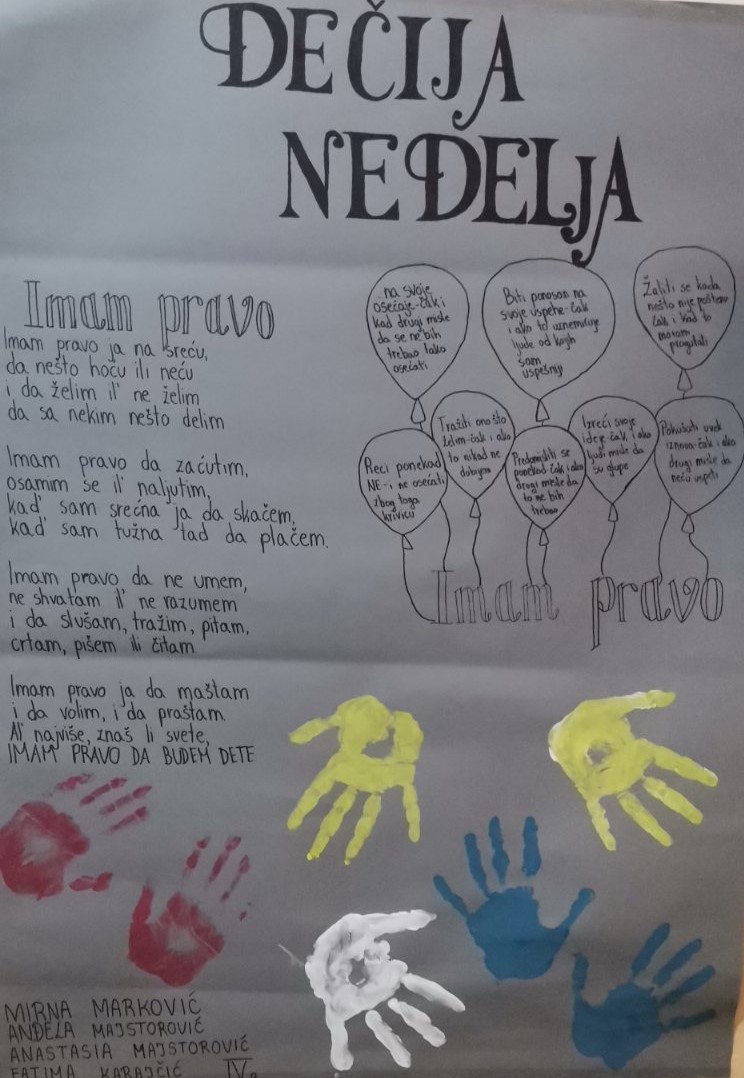 DEČIJA
NEDELJA
Imam pravo
Imam pravo ja na sreću,
da nešto hoću ili neću
i da želim il' ne želim
da sa nekim nešto delim
Imam pravo da zaćutim,
osamim se il' naljutim,
kad sam srećna ja da skačem,
kad sam tužna tad da plačem.
Imam pravo da ne umem,
ne shvatam il' ne razumem
i da slušam, tražim, pitam,
crtam, pišem ili čitam.
Imam pravo ja da maštam
i da volim, i da praštam.
Al' najviše, znaš li svete,
IMAM PRAVO DA BUDEM DETE
na svoje
osećaje-čak i
kad drugi misle
da se ne bih
trebao tako
osećati
Biti ponosan na
svoje uspehe-čak
i ako to uznemiruje
ljude od kojih
sam
uspešniji
Žaliti se kada
nešto nije pošteno
čak i kad to
moram
progutati
Reci ponekad
NE-i ne osećati
zbog toga
krivicu
Tražiti ono što
želim-čak i ako
to nikad ne
dobijem
Predomisliti se
ponekad-čak i ako
drugi misle da
to ne bih
trebao
Izreći svoje
ideje-čak i ako
ljudi misle da
su glupe
Pokušati uvek
iznova-čak i ako
drugi misle da
neću uspeti
Imam pravo
MIRNA MARKOVIĆ
ANĐELA MAJSTOROVIĆ
ANASTASIA MAJSTOROVIĆ
FATIMA KARAJČIĆ IV